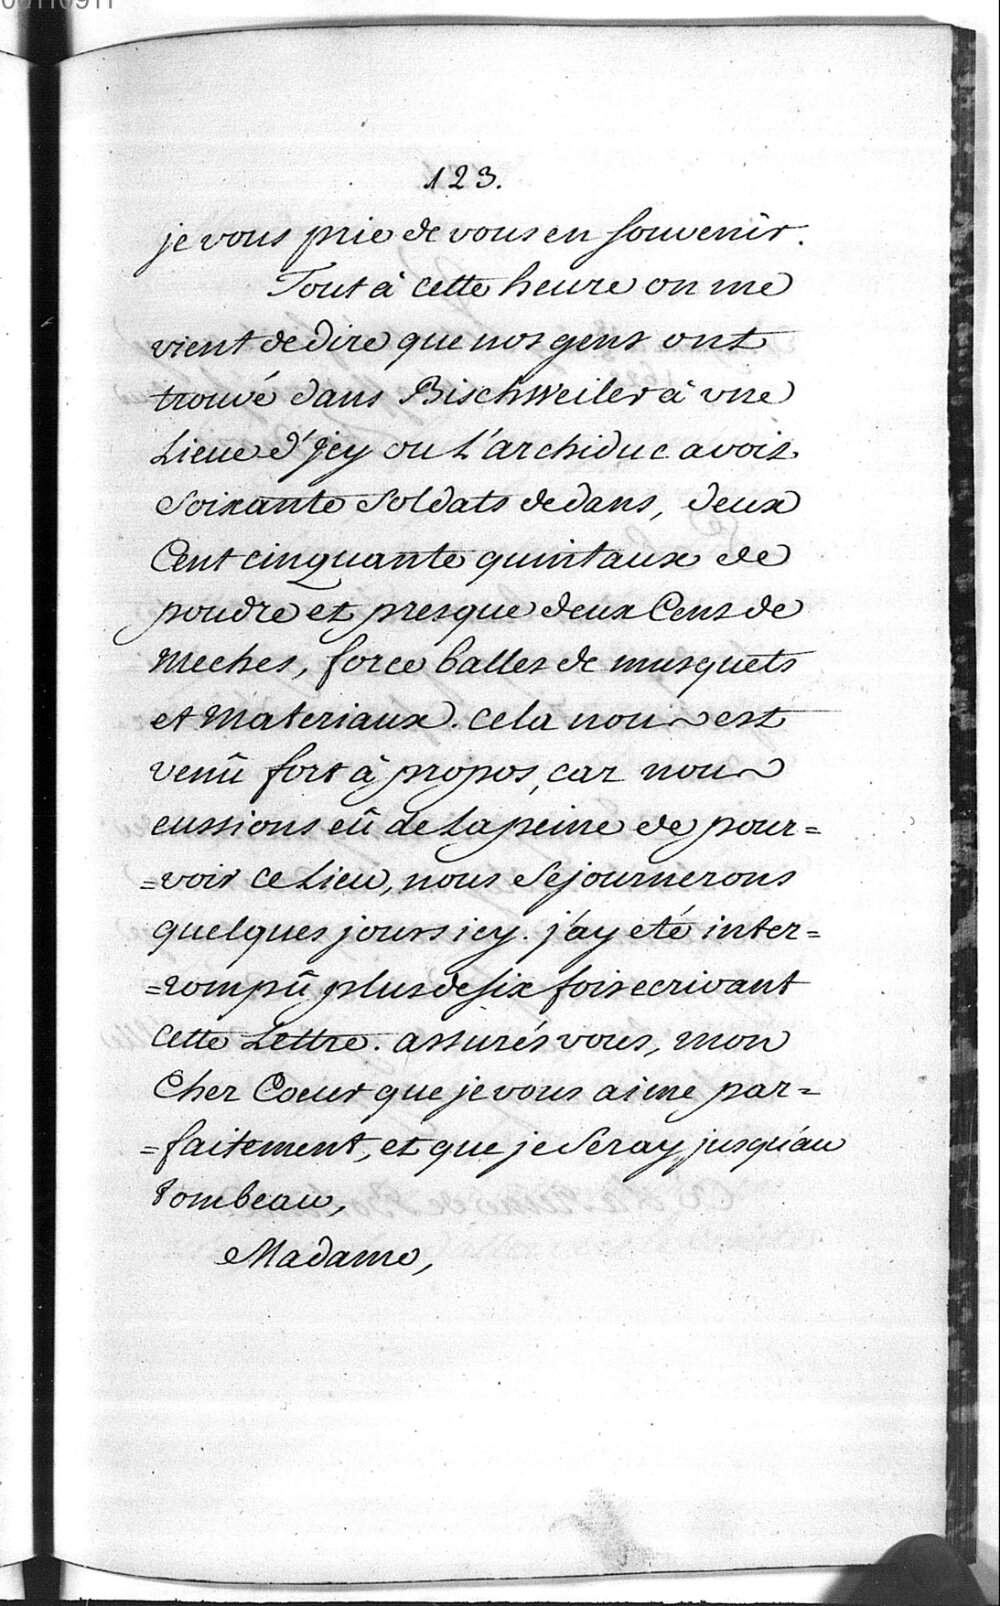 00110911
123.
je vous prie de vous en souvenir.
Tout à cette heure on me
vient de dire que nos gens ont
trouvé dans Bischweiler à vne
Lieue d'Jcy ou L'archiduc avoit
Soixante Soldats dedans, deux
Cent cinquante quintaux de
poudre et presque deux Cens de
Meches, force balles de musquets
et Materiaux. cela nous est
venû fort à propos, car nous
eussions eû de la peine de pour=
=voir ce Lieu, nous Sejournerons
quelques jours icy. j'ay eté inter=
=rompû plus de six fois ecrivant
cette Lettre. assurés vous, mon
Cher Coeur que je vous aime par=
=faitement, et que je Seray jusqu'au
tombeau,
Madame,